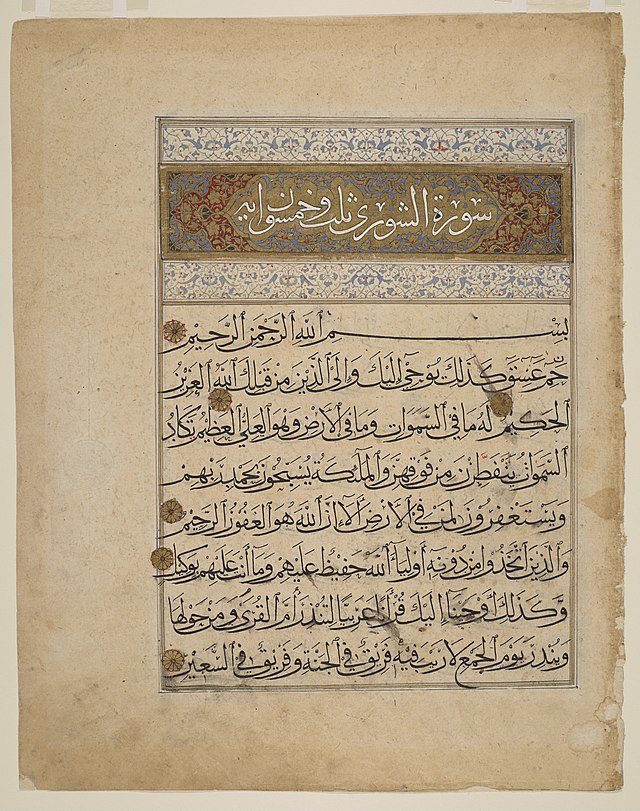 سورة الشورى ثلث وخمسون اية
بسم الله الرحمن الرحيم
حم عسق كذلك يوحى إليك وإلى الذين من قبلك الله العزيز
الحكيم له ما في السموات وما في الأرض وهو العلي العظيم تكاد
السموات يتفطرن من فوقهن والملئكة يسبحون بحمد ربهم
ويستغفرون لمن في الأرض ألا إن الله هو الغفور الرحيم
والذين اتخذوا من دونه أولياء الله حفيظ عليهم وما أنت عليهم بوكيل
وكذلك أوحينا إليك قرآنا عربيا لتنذر أم القرى ومن حولها
وتنذر يوم الجمع لا ريب فيه فريق في الجنة وفريق في السعير